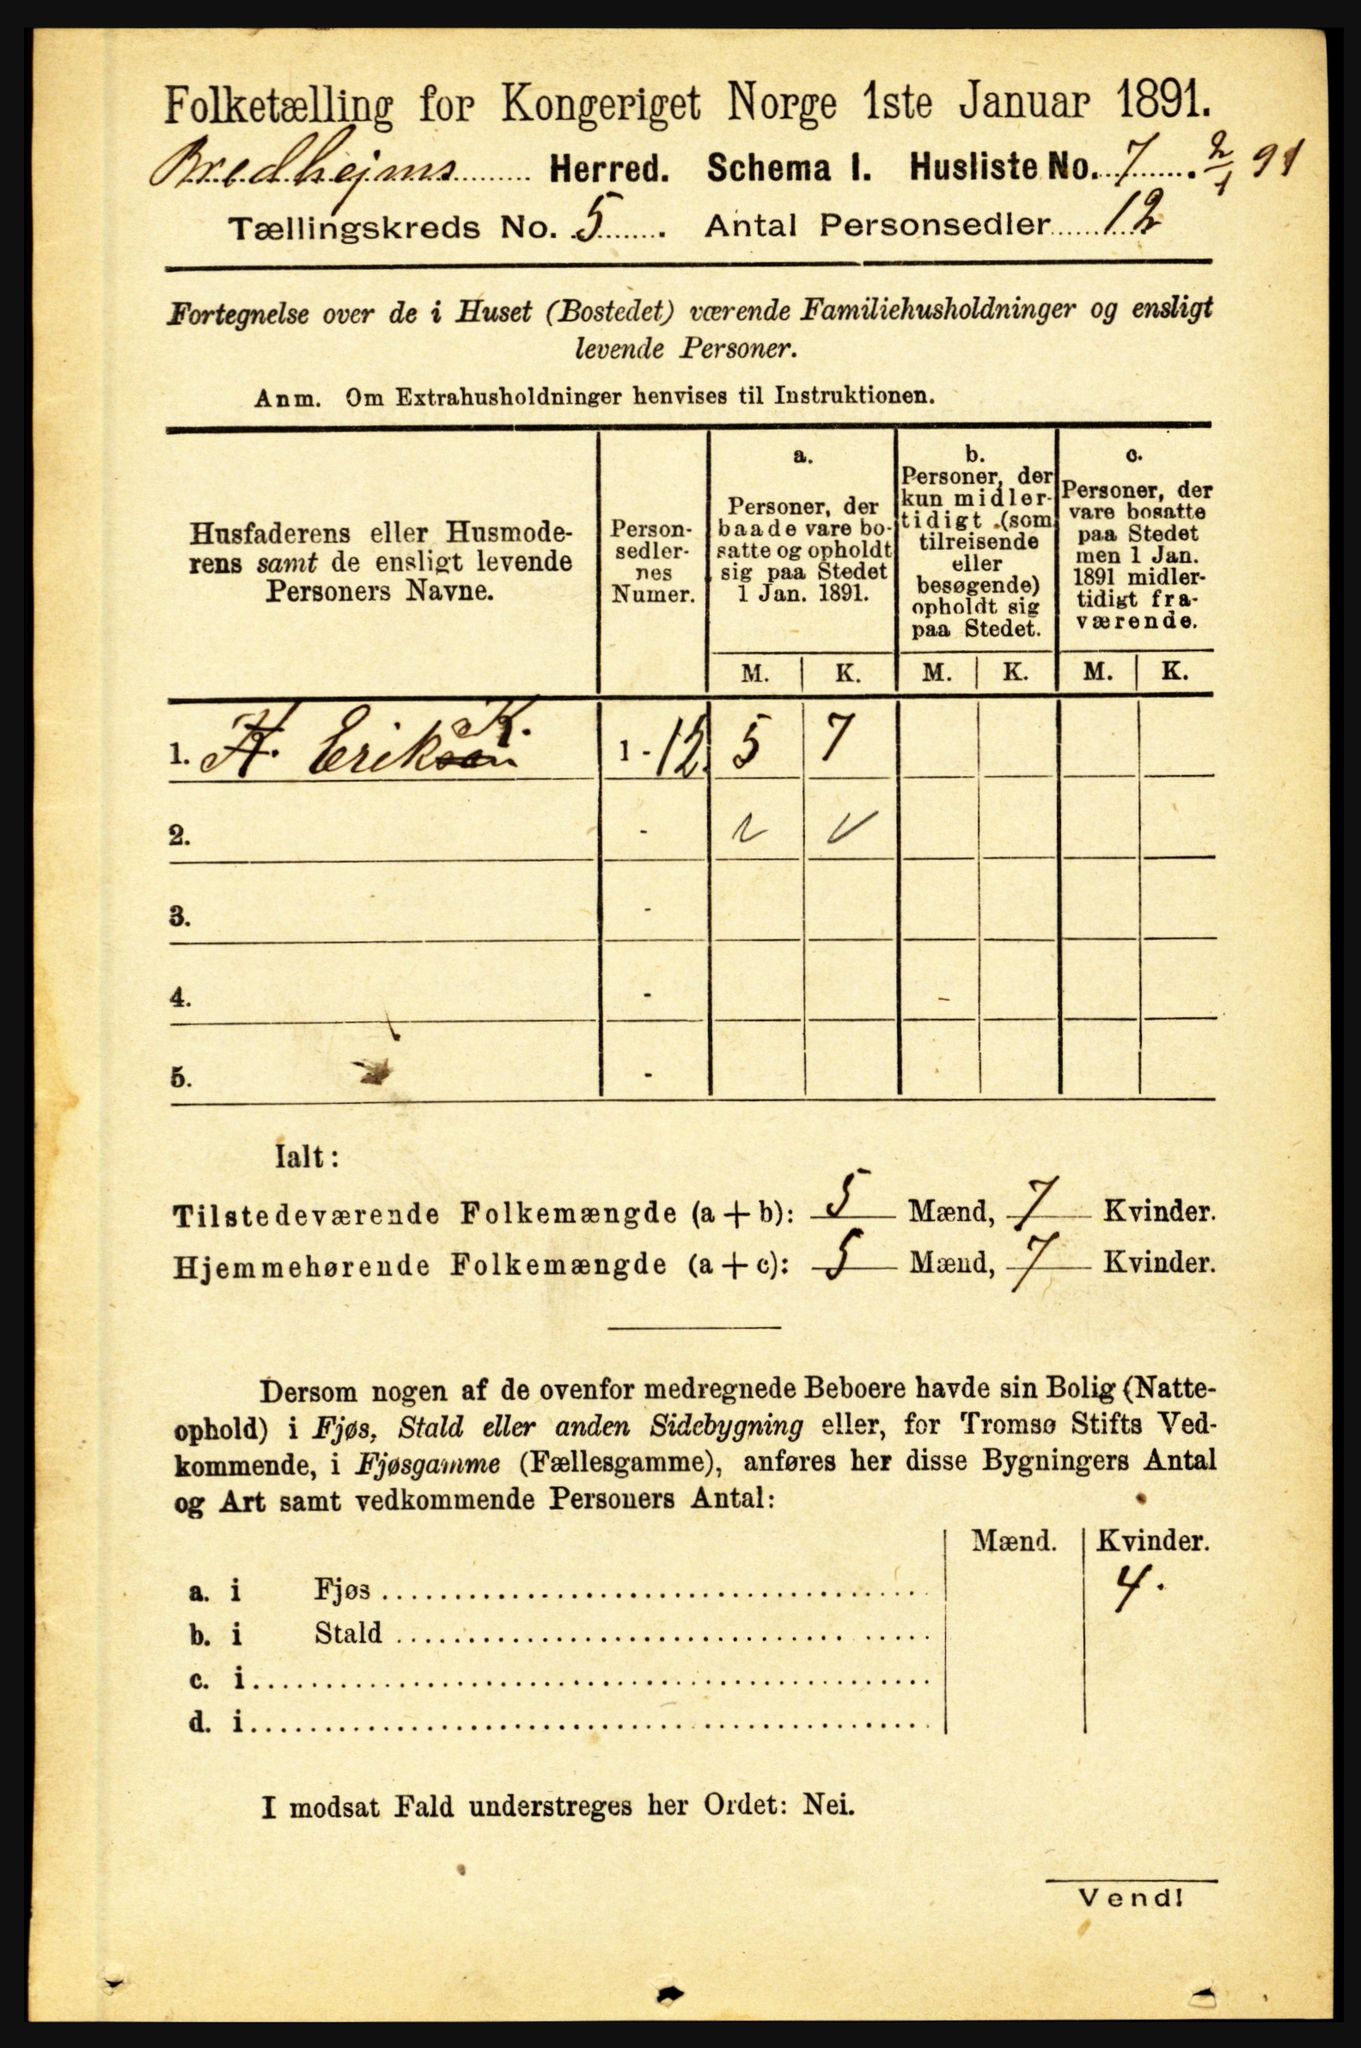 Folketælling for Kongeriget Norge 1ste Januar 1891.
Bredhejms Herred. Schema I. Husliste No. 7. 2/1 91
Tællingskreds No. 5. Antal Personsedler 12
Fortegnelse over de i Huset (Bostedet) værende Familiehusholdninger og ensligt
levende Personer.
Anm. Om Extrahusholdninger henvises til Instruktionen.
Husfaderens eller Husmode-
rens samt de ensligt levende
Personers Navne.
Person-
sedler-
nes
Numer.
a.
Personer, der
baade vare bo-
satte og opholdt
sig paa Stedet
1 Jan. 1891.
b.
Personer, der
kun midler-
tidigt (som
tilreisende
eller
besøgende)
opholdt sig
paa Stedet.
c.
Personer, der
vare bosatte
paa Stedet
men 1 Jan.
1891 midler-
tidigt fra-
værende.
M. K. M. K. M. K.
K.
1. H. Eriksen 1 - 12. 5 7
2. -
3. -
4. - -
5. -
Ialt:
Tilstedeværende Folkemængde (a + b): 5 Mænd, 7 Kvinder.
Hjemmehørende Folkemængde (a + c): 5 Mænd, 7 Kvinder.
Dersom nogen af de ovenfor medregnede Beboere havde sin Bolig (Natte-
ophold) i Fjøs, Stald eller anden Sidebygning eller, for Tromsø Stifts Ved-
kommende, i Fjøsgamme (Fællesgamme), anføres her disse Bygningers Antal
og Art samt vedkommende Personers Antal:
Mænd. Kvinder.
a. i Fjøs 4.
b. i Stald
c. i
d. i
I modsat Fald understreges her Ordet: Nei.
Vend!